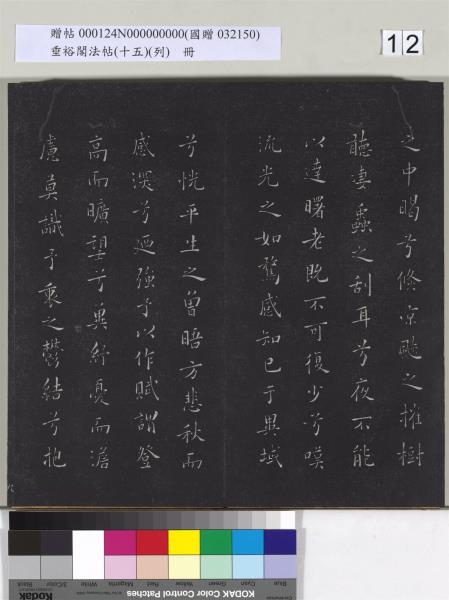 贈帖 000124N000000000(國贈 032150)
垂裕閣法帖(十五)(列) 冊
12
之中暍兮倏凉飈之摧樹
聽凄蟲之刮耳兮夜不能
以達曙老既不可復少兮嘆
流光之如驚感知己于異域
兮恍平生之曾晤方悲秋而
感深兮迺強予以作賦謂登
高而曠望兮冀紓憂而澹
慮莫識予衷之鬱結兮抱
Blue Cyan Green Yellow Red Magenta White 3/Color Black
KODAK Color Control Patches
Kodak